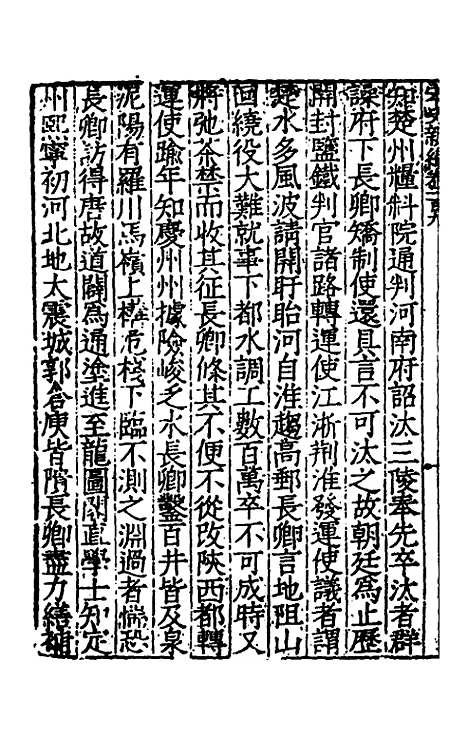 知楚州糧料院通判河南府詔汰三陵奉先卒汰者群
譟府下長卿矯制使還具言不可汰之故朝廷為止歷
開封鹽鐵判官諸路轉運使江淅荆淮發運使議者謂
楚水多風波請開盱眙河自淮趨高郵長卿言地阻山
回繞役大難就事下都水調工數百萬卒不可成時又
將弛茶禁而收其征長卿條其不便不從改陝西都轉
運使踰年知慶州州據險峻乏水長卿鑿百井皆及泉
泥陽有羅川馬嶺上構危棧下臨不測之淵過者惴恐
長卿訪得唐故道闢為通塗進至龍圖閣直學士知定
州熙寧初河北地大震城郭倉庾皆隤長卿盡力繕補